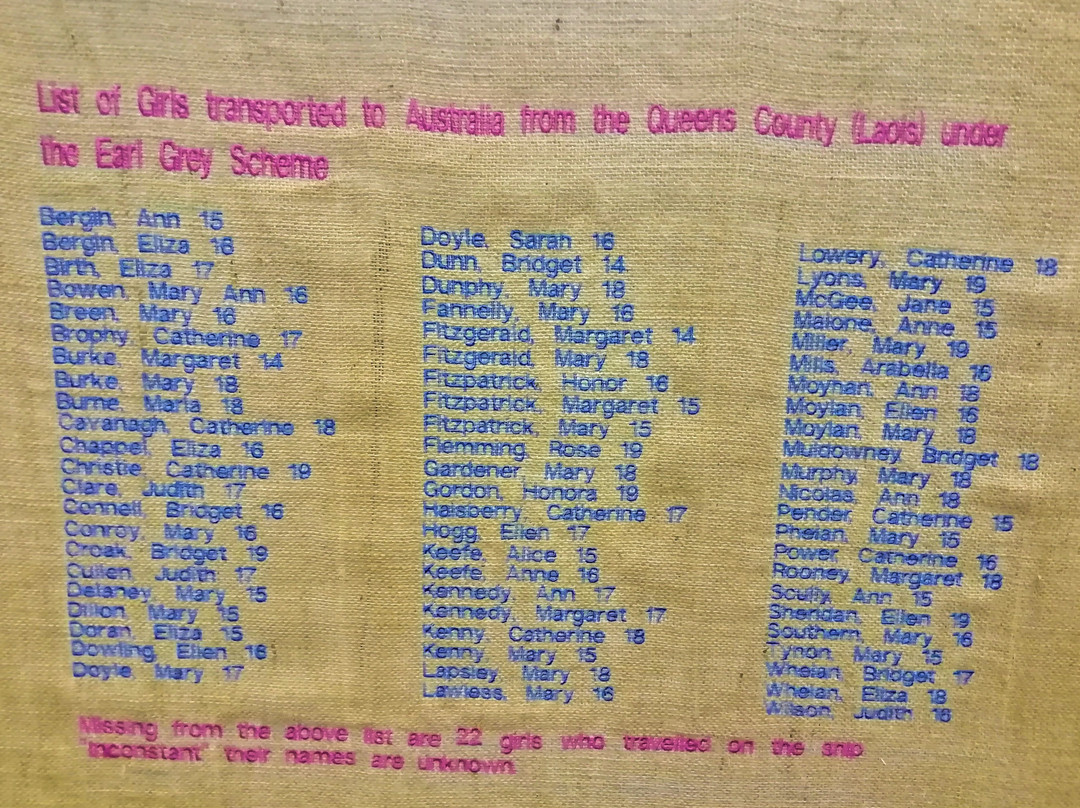 List of Girls transported to Australia from the Queens County (Laois) under
the Earl Grey Scheme
Bergin, Ann 15
Bergin, Eliza 16
Birth, Eliza 17
Bowen, Mary Ann 16
Breen, Mary 16
Brophy, Catherine 17
Burke, Margaret 14
Burke, Mary 18
Burne, Maria 18
Cavanagh, Catherine 18
Chappel, Eliza 16
Christie, Catherine 19
Clare, Judith 17
Connell, Bridget 16
Conroy, Mary 16
Croak, Bridget 19
Cullen, Judith 17
Delaney, Mary 15
Dillon, Mary 15
Doran, Eliza 15
Dowling, Ellen 16
Doyle, Mary 17
Doyle, Sarah 16
Dunn, Bridget 14
Dunphy, Mary 18
Fannelly, Mary 16
Fitzgerald, Margaret 14
Fitzgerald, Mary 18
Fitzpatrick, Honor 16
Fitzpatrick, Margaret 15
Fitzpatrick, Mary 15
Flemming, Rose 19
Gardener, Mary 18
Gordon, Honora 19
Halsberry, Catherine 17
Hogg, Ellen 17
Keefe, Alice 15
Keefe, Anne 16
Kennedy, Ann 17
Kennedy, Margaret 17
Kenny, Catherine 18
Kenny, Mary 15
Lapsley, Mary 18
Lawless, Mary 16
Lowery, Catherine 18
Lyons, Mary 19
McGee, Jane 15
Malone, Anne 15
Miller, Mary 19
Mills, Arabella 16
Moynan, Ann 18
Moylan, Ellen 16
Moylan, Mary 18
Muldowney, Bridget 18
Murphy, Mary 18
Nicolas, Ann 18
Pender, Catherine 15
Phelan, Mary 15
Power, Catherine 16
Rooney, Margaret 18
Scully, Ann 15
Sheridan, Ellen 19
Southern, Mary 16
Tynon, Mary 15
Whelan, Bridget 17
Whelan, Eliza 18
Wilson, Judith 16
Missing from the above list are 22 girls who travelled on the ship
"Inconstant" their names are unknown.